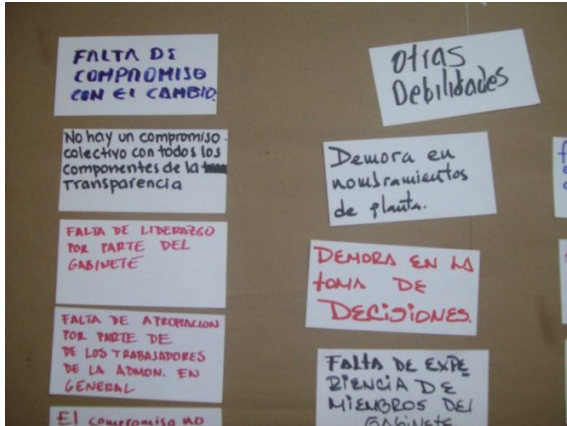 FALTA DE
COMPROMISO
CON El CAMBIO.
No hay un compromiso
colectivo con todos los
componentes de la
Transparencia
FALTA DE LIDERAZGO
POR PARTE DEL
GABINETE
FALTA DE APROPIACION
POR PARTE DE
DE LOS TRABAJADORES
DE LA ADMON. EN
GENERAL
El compromiso no
Otras
Debilidades
Demora en
nombramientos
de planta.
DEMORA EN LA
toma DE
DECISIONES.
FALTA DE EXPE
RIENCIA DE
MIEMBROS DEL
GABINETE